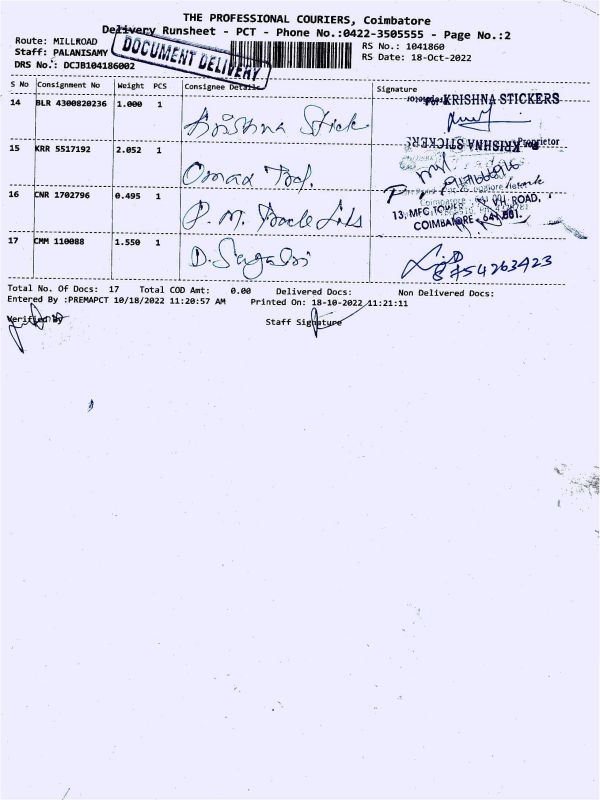 THE PROFESSIONAL COURIERS, Coimbatore
Delivery Runsheet - PCT - Phone No.:0422-3505555 - Page No.:2
Route: MILLROAD
RS No.: 1041860
Staff: PALANISAMY
RS Date: 18-Oct-2022
DRS No.: DCJB104186002
DOCUMENT DELIVERY
S No Consignment No Weight PCS Consignee Details Signature
14 BLR 4300820236 1.000 1 Krishna Stick
For KRISHNA STICKERS
Proprietor
15 KRR 5517192 2.052 1 Omax
KRISHNA STICKERS
16 CNR 1702796 0.495 1 P. M.
13, MFC TOWER, ROAD,
COIMBATORE - 641 001.
17 CMM 110088 1.550 1 D.
8754263423
Total No. Of Docs: 17 Total COD Amt: 0.00 Delivered Docs: Non Delivered Docs:
Entered By :PREMAPCT 10/18/2022 11:20:57 AM Printed On: 18-10-2022 11:21:11
Verified By
Staff Signature